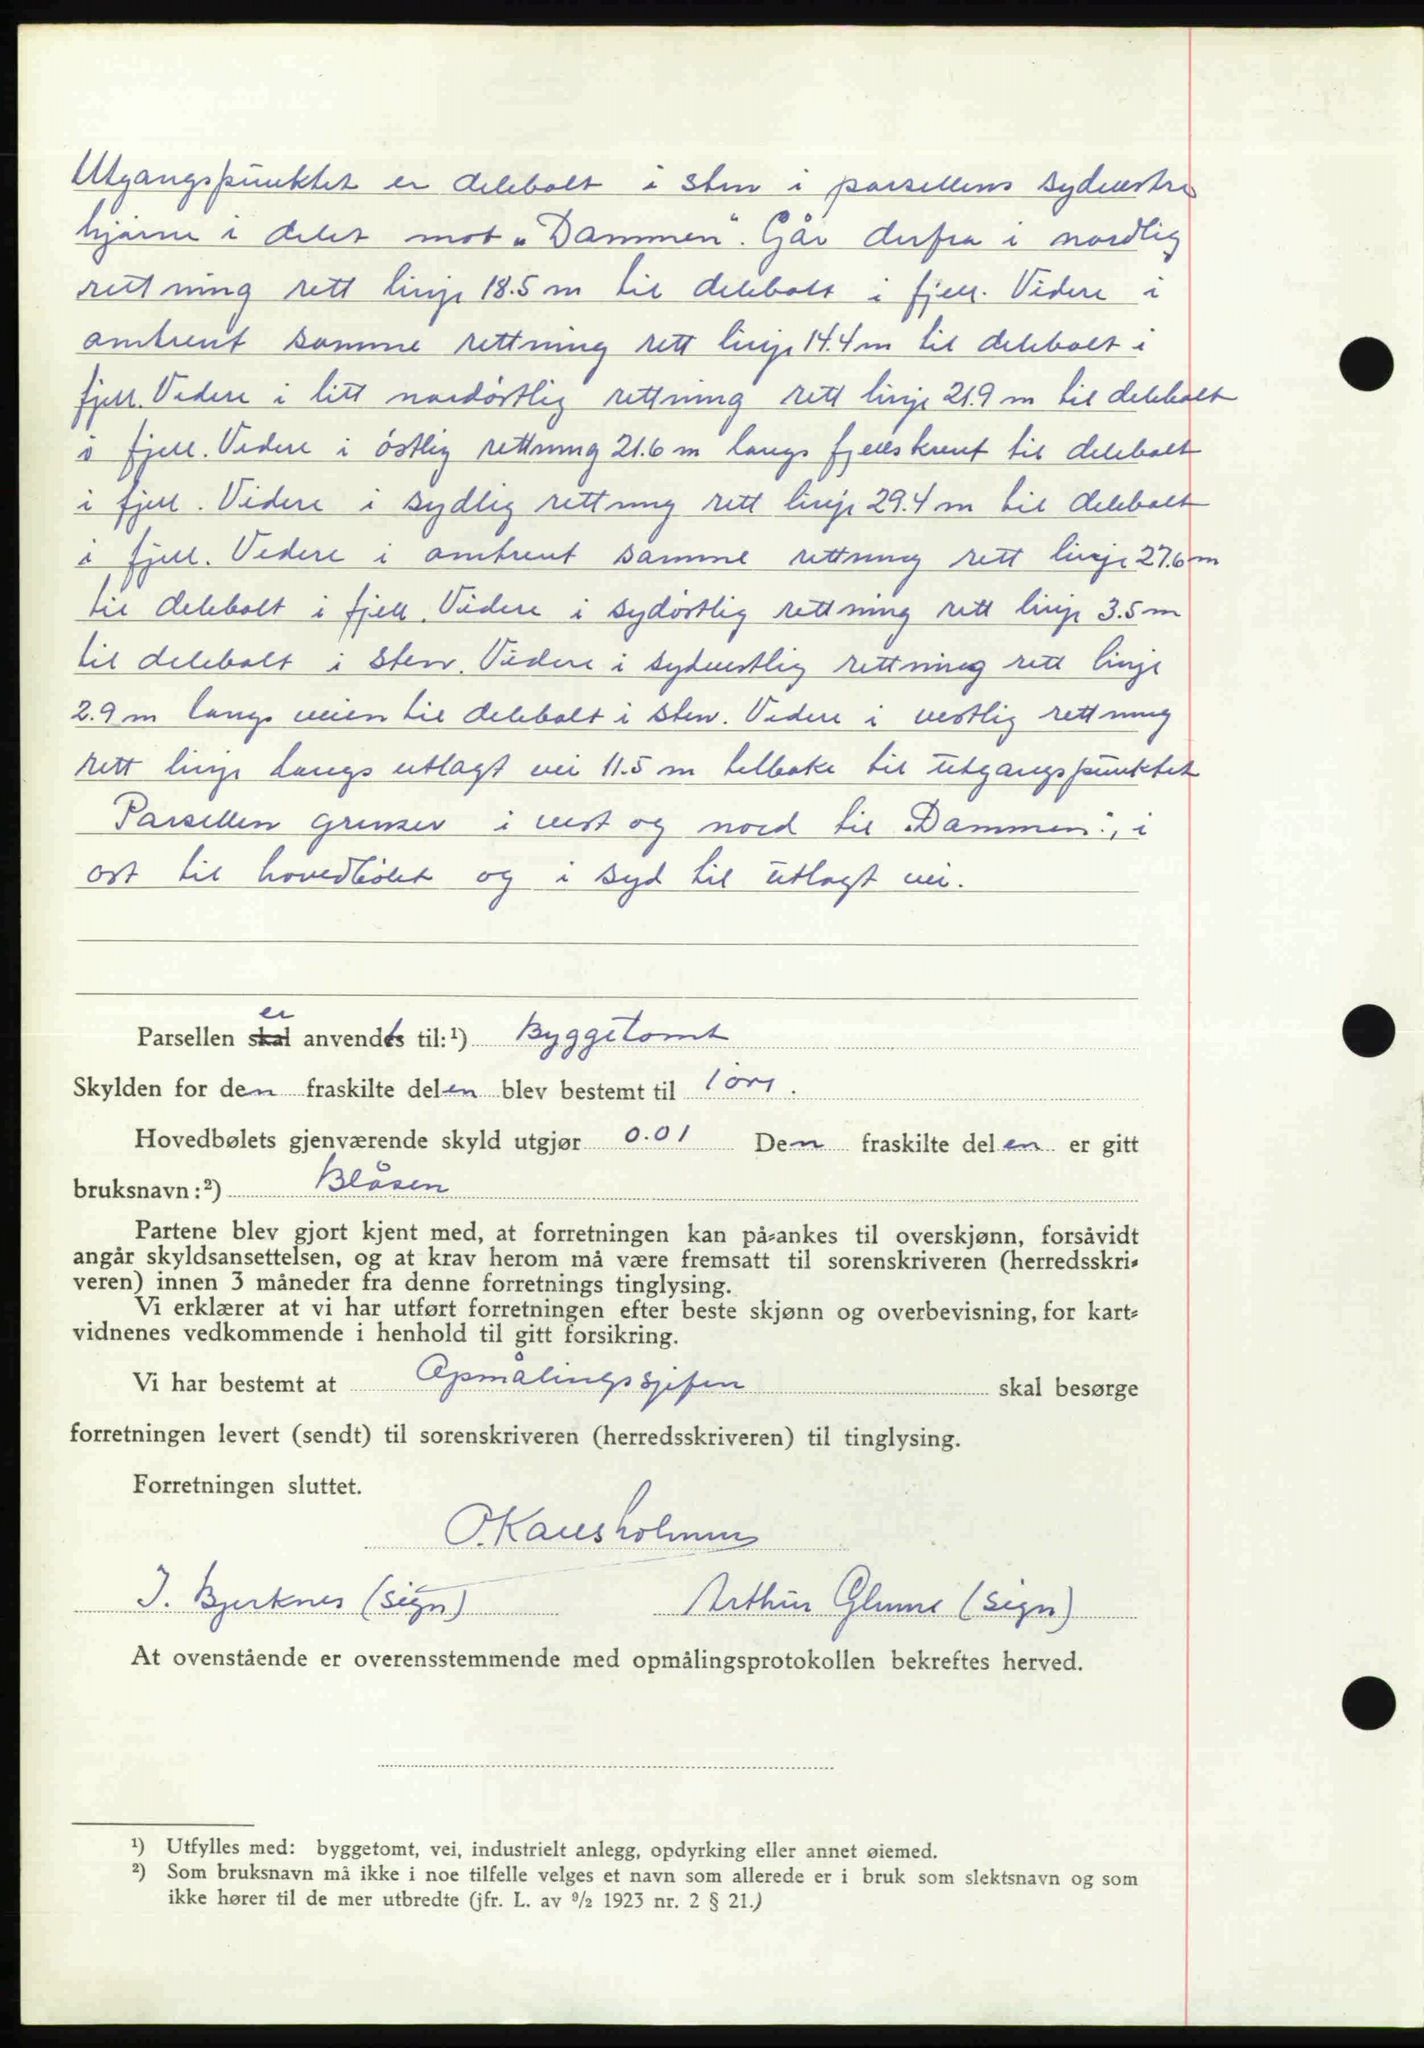 Utgangspunktet er delebolt i sten i parsellens sydvestre
hjørne i delet mot "Dammen". Går derfra i nordlig
rettning rett linje 18.5 m til delebolt i fjell. Videre i
omtrent samme rettning rett linje 14.4 m til delebolt i
fjell. Videre i litt nordøstlig rettning rett linje 21.9 m til delebolt
i fjell. Videre i østlig rettning 21.6 m langs fjellskrent til delebolt
i fjell. Videre i sydlig rettning rett linje 29.4 m til delebolt
i fjell. Videre i omtrent samme rettning rett linje 27.6 m
til delebolt i fjell. Videre i sydøstlig rettning rett linje 3.5 m
til delebolt i sten. Videre i sydvestlig rettning rett linje
2.9 m langs veien til delebolt i sten. Videre i vestlig rettning
rett linje langs utlagt vei 11.5 m tilbake til utgangspunktet
Parsellen grenser i vest og nord til "Dammen", i
øst til hovedbølet og i syd til utlagt vei.
Parsellen skal er anvendts til:¹) Byggetomt
Skylden for den fraskilte delen blev bestemt til 1 øre.
Hovedbølets gjenværende skyld utgjør 0.01 Den fraskilte delen er gitt
bruksnavn:²) Blåsen
Partene blev gjort kjent med, at forretningen kan på-ankes til overskjønn, forsåvidt
angår skyldsansettelsen, og at krav herom må være fremsatt til sorenskriveren (herredsskri-
veren) innen 3 måneder fra denne forretnings tinglysing.
Vi erklærer at vi har utført forretningen efter beste skjønn og overbevisning, for kart-
vidnenes vedkommende i henhold til gitt forsikring.
Vi har bestemt at Opmålingssjefen skal besørge
forretningen levert (sendt) til sorenskriveren (herredsskriveren) til tinglysing.
Forretningen sluttet.
O. Kausholmen
J. Bjerknes (sign) Arthur Glenne (sign)
At ovenstående er overensstemmende med opmålingsprotokollen bekreftes herved.
¹) Utfylles med: byggetomt, vei, industrielt anlegg, opdyrking eller annet øiemed.
²) Som bruksnavn må ikke i noe tilfelle velges et navn som allerede er i bruk som slektsnavn og som
ikke hører til de mer utbredte (jfr. L. av 9/2 1923 nr. 2 § 21.)